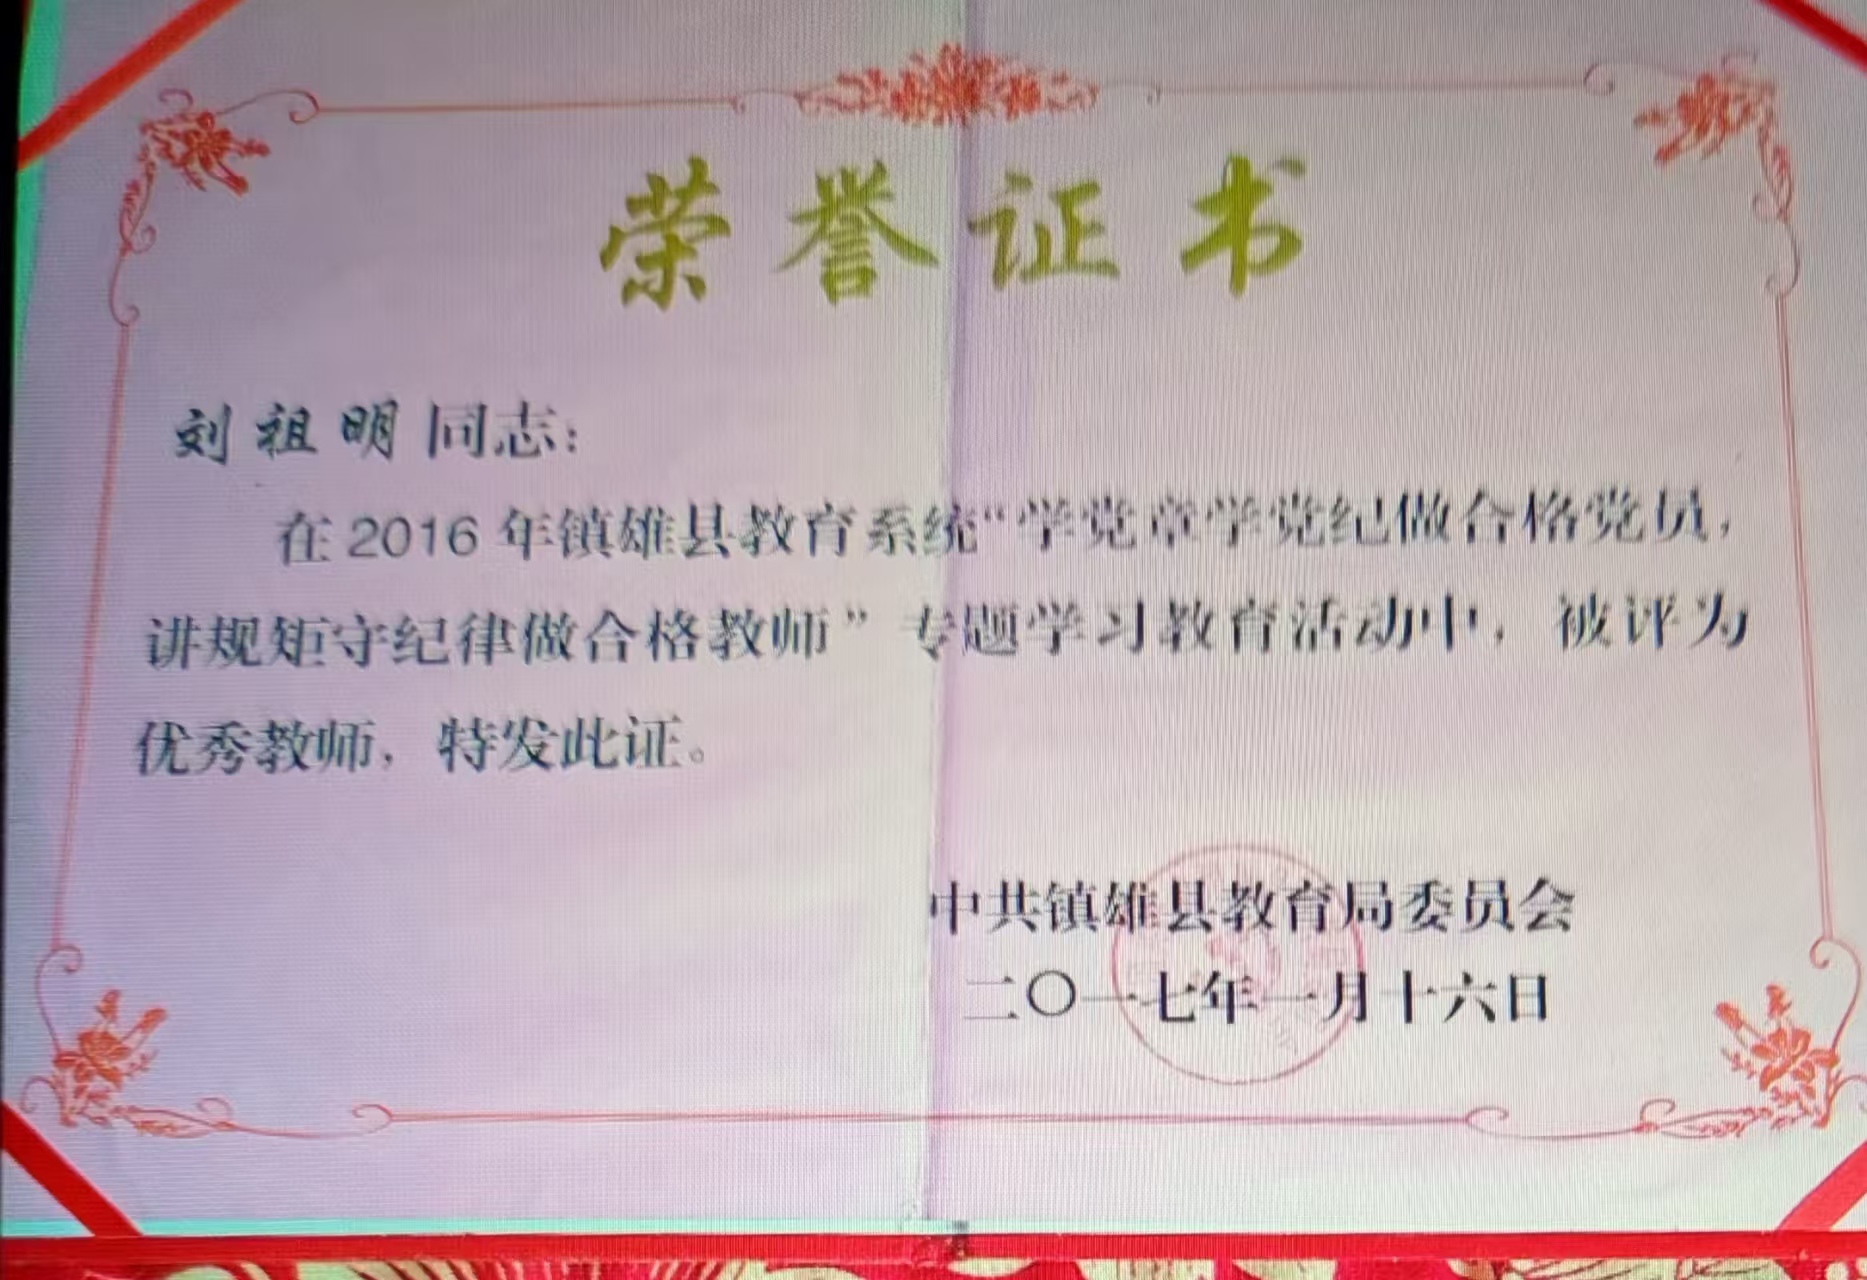 荣誉证书
刘祖明同志：
在2016年镇雄县教育系统“学党章学党纪做合格党员，
讲规矩守纪律做合格教师”专题学习教育活动中，被评为
优秀教师，特发此证。
中共镇雄县教育局委员会
二〇一七年一月十六日